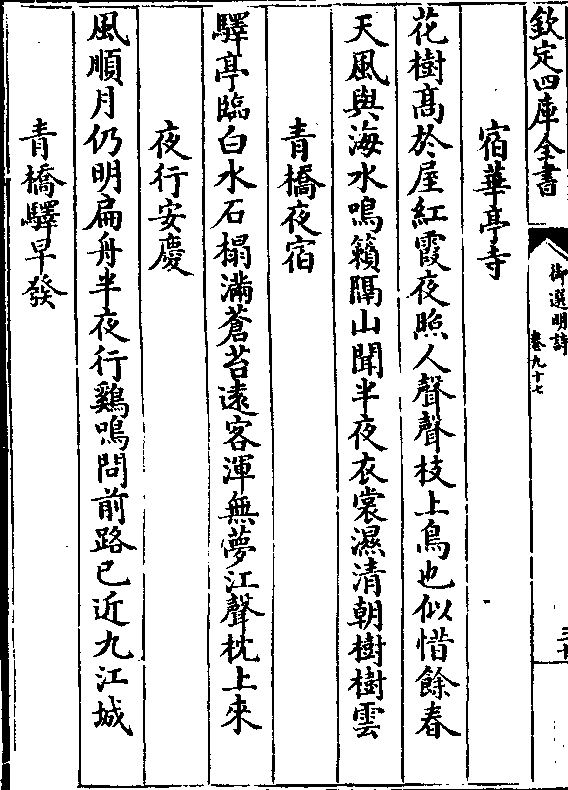 欽定四庫全書
御選明詩
卷九十七
三十
宿華亭寺
花樹髙於屋紅霞夜照人聲聲枝上鳥也似惜餘春
天風與海水鳴籟隔山聞半夜衣裳濕清朝樹樹雲
青橋夜宿
驛亭臨白水石榻滿蒼苔逺客渾無夢江聲枕上來
夜行安慶
風順月仍明扁舟半夜行鷄鳴問前路已近九江城
青橋驛早發